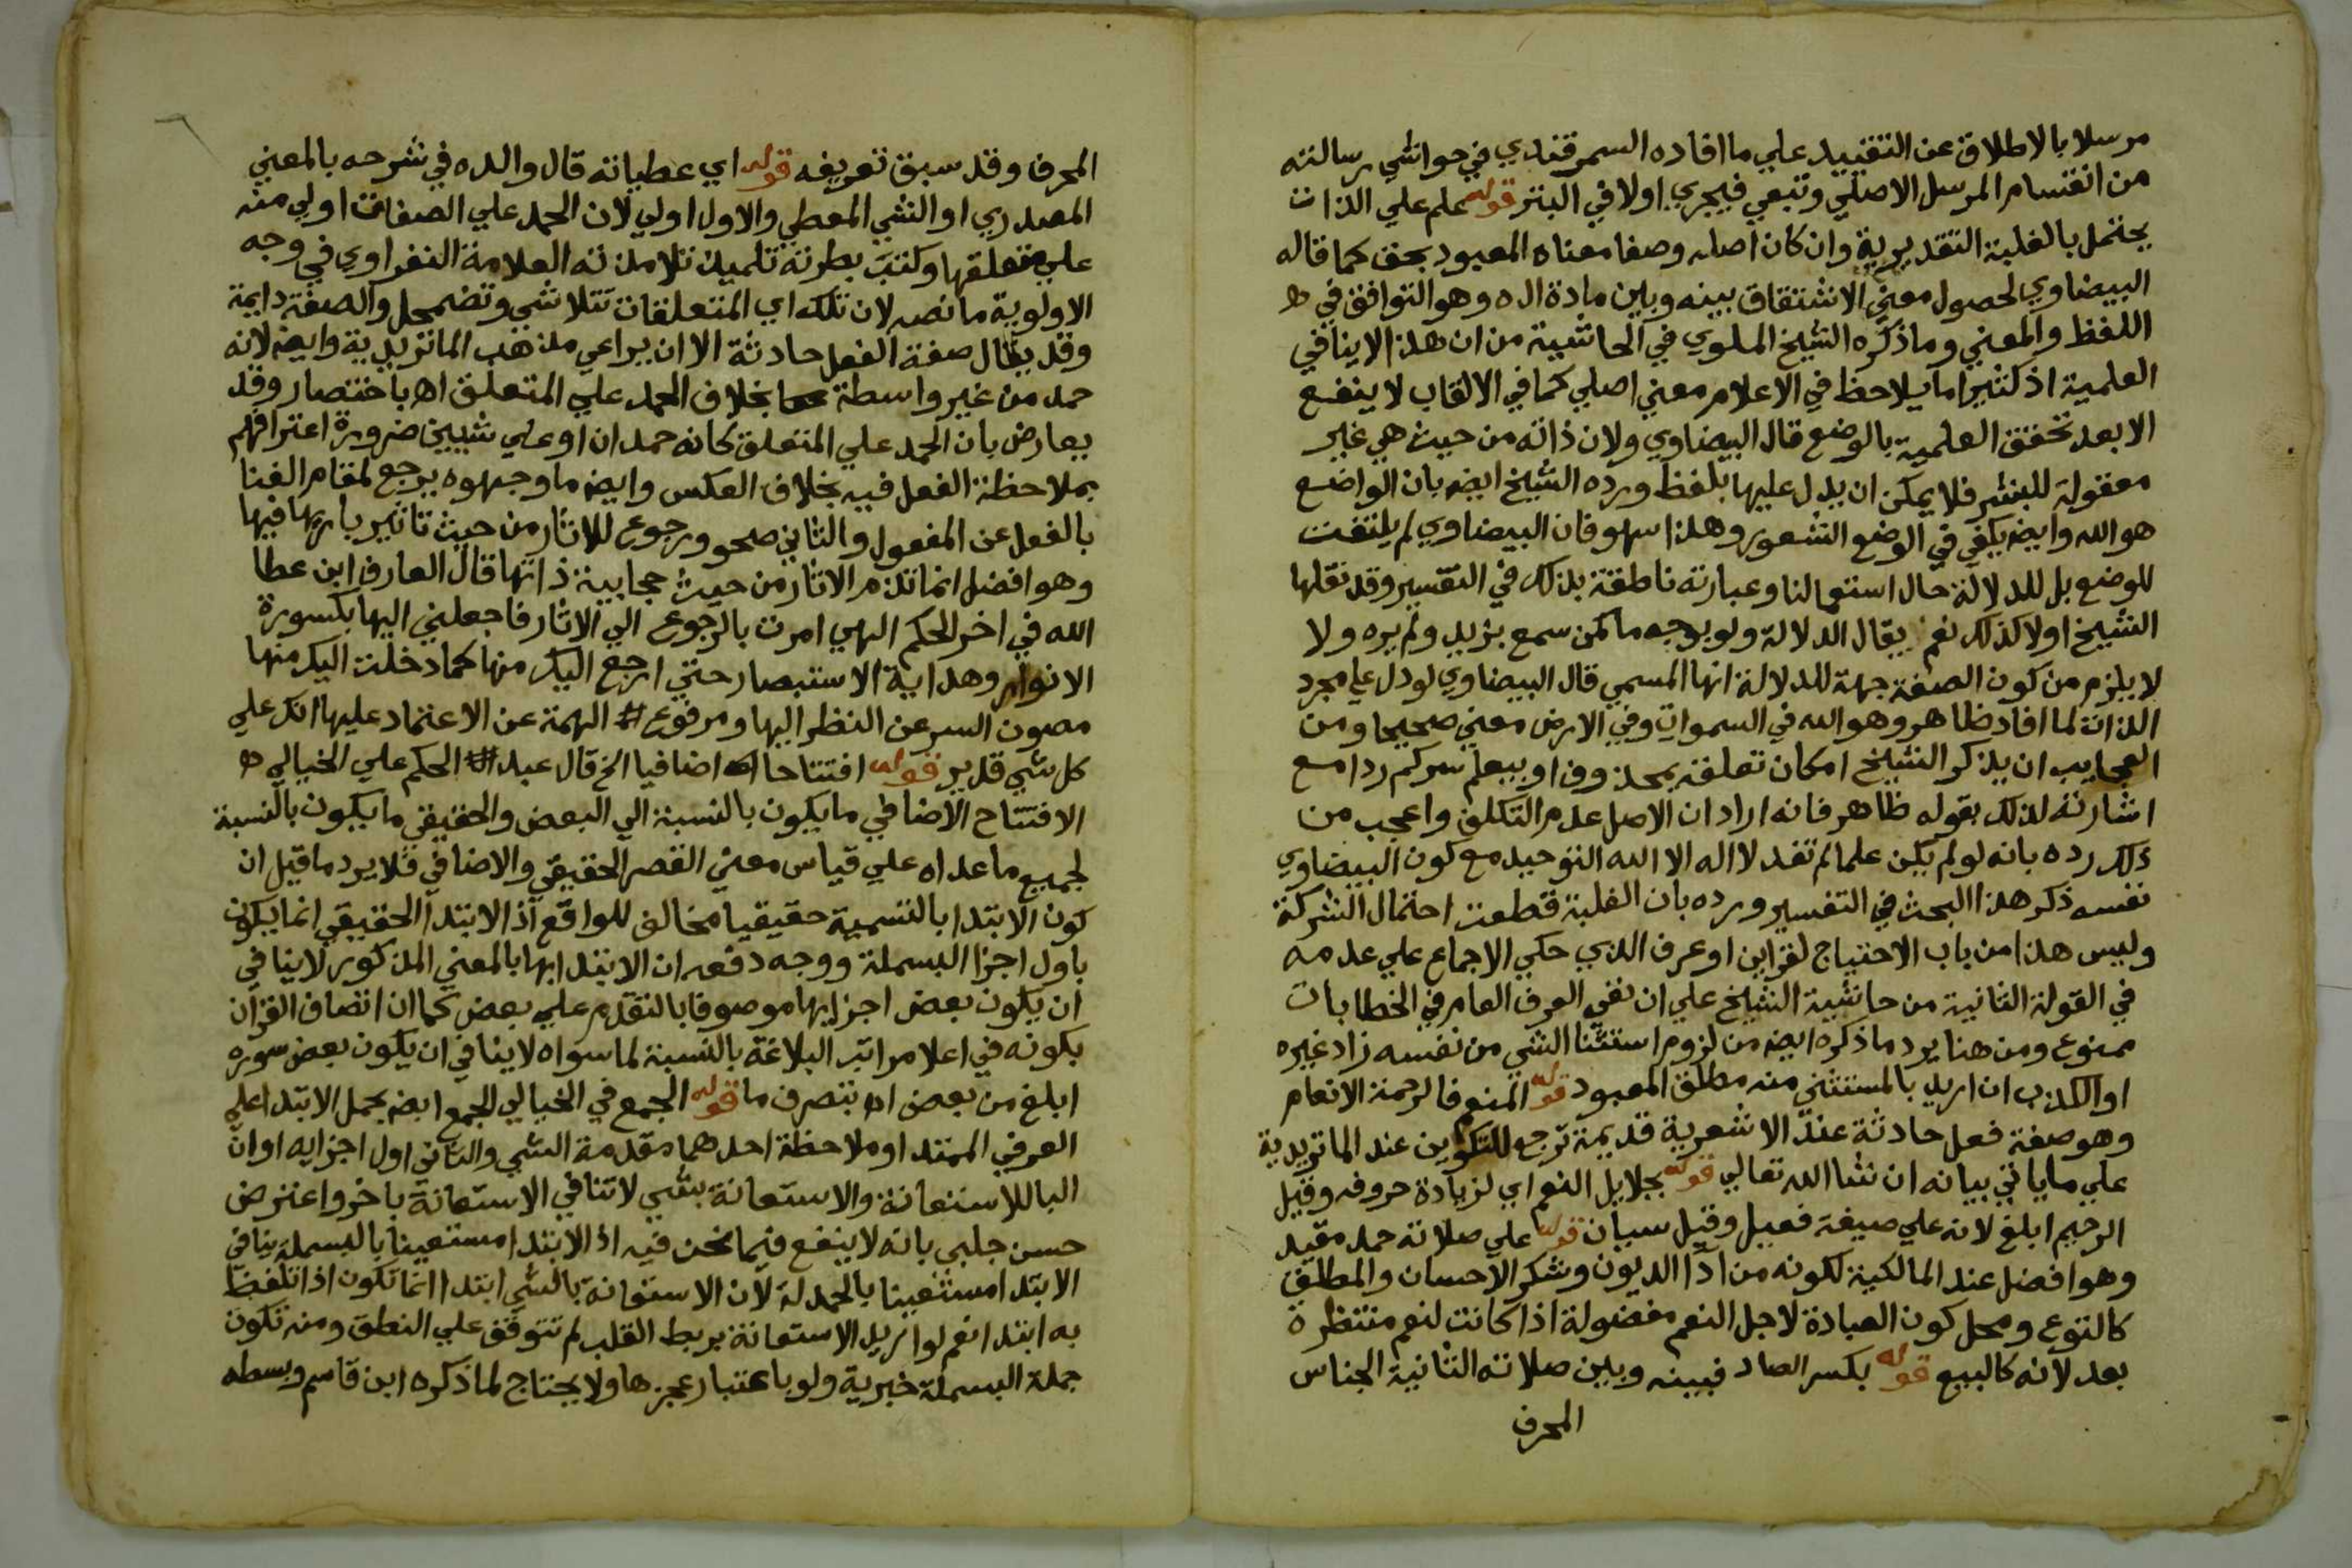 مرسلا بالاطلاق عن التقييد علي ما افاده السمرقندي في حواشي رسالته
من انقسام المرسل الاصلي وتبعي فيجري اولا في البتر قوله علم علي الذات
يحتمل بالغلبة التقديرية وان كان اصله وصفا معناه المعبود بحق كما قاله
البيضاوي لحصول معني الاشتقاق بينه وبين مادة اله وهو التوافق في
اللفظ والمعني وما ذكره الشيخ الملوي في الحاشية من ان هذا لا ينافي
العلمية اذ كثيرا ما يلاحظ في الاعلام معني اصلي كما في الالقاب لا ينفع
الا بعد تحقق العلمية بالوضع قال البيضاوي ولان ذاته من حيث هي غير
معقولة للبشر فلا يمكن ان يدل عليها بلفظ ورده الشيخ ايض بان الواضع
هو الله وايض يكفي في الوضع الشعور وهذا سهو فان البيضاوي لم يلتفت
للوضع بل للدلالة حال استعمالنا وعبارته ناطقة بذلك في التفسير وقد نقلها
الشيخ اولا كذلك نعم يقال الدلالة ولو بوجه ما كمن سمع بزيد ولم يره ولا
لا يلزم من كون الصفة جهة للدلالة انها المسمي قال البيضاوي لو دل علي مجرد
الذات لما افاد ظاهر وهو الله في السموات وفي الارض معني صحيحا ومن
العجايب ان يذكر الشيخ امكان تعلقه بمحذوف او بيعلم سركم ردا مع
اشارته لذلك بقوله ظاهر فانه اراد ان الاصل عدم التكلف واعجب من
ذلك رده بانه لو لم يكن علما لم تفد لا اله الا الله التوحيد مع كون البيضاوي
نفسه ذكر هذا البحث في التفسير ورده بان الغلبة قطعت احتمال الشركة
وليس هذا من باب الاحتياج لقراين او عرف الذي حكي الاجماع علي عدمه
في القولة الثانية من حاشية الشيخ علي ان نفي العرف العام في الخطابات
ممنوع ومن هنا يرد ما ذكره ايض من لزوم استثنا الشي من نفسه زاد غيره
او الكذب ان اريد بالمستثني منه مطلق المعبود قوله المنعم فالرحمة الانعام
وهو صفة فعل حادثة عند الاشعرية قديمة ترجع للتكوين عند الماتريدية
علي ما ياتي بيانه ان شا الله تعالي قوله بجلايل النعم اي لزيادة حروفه وقيل
الرحيم ابلغ لانه علي صيغة فعيل وقيل سيان قوله علي صلاته حمد مقيد
وهو افضل عند المالكية لكونه من ادا الديون وشكر الاحسان والمطلق
كالتوع ومحل كون العبادة لاجل النعم مفضولة اذا كانت لنعم منتظرة
بعد لانه كالبيع قوله بكسر الصاد فبينه وبين صلاته الثانية الجناس
المحرف
المحرف وقد سبق تعريفه قوله اي عطياته قال والده في شرحه بالمعني
المصدري او الشي المعطي والاول اولي لان الحمد علي الصفات اولي منه
علي متعلقها وكتب بطرته تلميذ تلامذته العلامة النفراوي في وجه
الاولوية ما نصه لان تلك اي المتعلقات تتلاشي وتضمحل والصفة دايمة
وقد يقال صفة الفعل حادثة الا ان يراعي مذهب الماتريدية وايض لانه
حمد من غير واسطة بخلاف الحمد علي المتعلق اه باختصار وقد
يعارض بان الحمد علي المتعلق كانه حمدان او علي شيين ضرورة اعترافهم
بملاحظة الفعل فيه بخلاف العكس وايض ما وجهوه يرجع لمقام الفنا
بالفعل عن المفعول والثاني صحو ورجوع للاثار من حيث تاثير باريها فيها
وهو افضل انما تذم الاثار من حيث حجابية ذاتها قال العارف ابن عطا
الله في اخر الحكم الهي امرت بالرجوع الي الاثار فاجعلني اليها بكسورة
الانوار وهداية الاستبصار حتي ارجع اليك منها كما دخلت اليك منها
مصون السر عن النظر اليها ومرفوع الهمة عن الاعتماد عليها انك علي
كل شي قدير قوله افتتاحا اضافيا الخ قال عبد الحكم علي الخيالي
الافتتاح الاضافي ما يكون بالنسبة الي البعض والحقيقي ما يكون بالنسبة
لجميع ما عداه علي قياس معني القصر الحقيقي والاضافي فلا يرد ما قيل ان
كون الابتدا بالتسمية حقيقيا مخالف للواقع اذ الابتدا الحقيقي انما يكون
باول اجزا البسملة ووجه دفعه ان الابتدا بها بالمعني المذكور لا ينافي
ان يكون بعض اجزايها موصوفا بالتقدم علي بعض كما ان اتصاف القران
بكونه في اعلا مراتب البلاغة بالنسبة لما سواه لا ينافي ان يكون بعض سوره
ابلغ من بعض اه بتصرف ما قوله الجمع في الخيالي الجمع ايض بحمل الابتدا علي
العرفي الممتد او ملاحظة احدهما مقدمة الشي والثاني اول اجزايه او ان
البا للاستعانة والاستعانة بشي لا تنافي الاستعانة باخر واعترض
حسن جلبي بانه لا ينفع فيما نحن فيه اذ الابتدا مستعينا بالبسملة ينافي
الابتدا مستعينا بالحمدلة لان الاستعانة بالشي ابتدا انما تكون اذا تلفظ
به ابتدا نعم لو اريد الاستعانة بربط القلب لم تتوقف علي النطق ومنه تكون
جملة البسملة خبرية ولو باعتبار عجزها ولا يحتاج لما ذكره ابن قاسم وبسطه